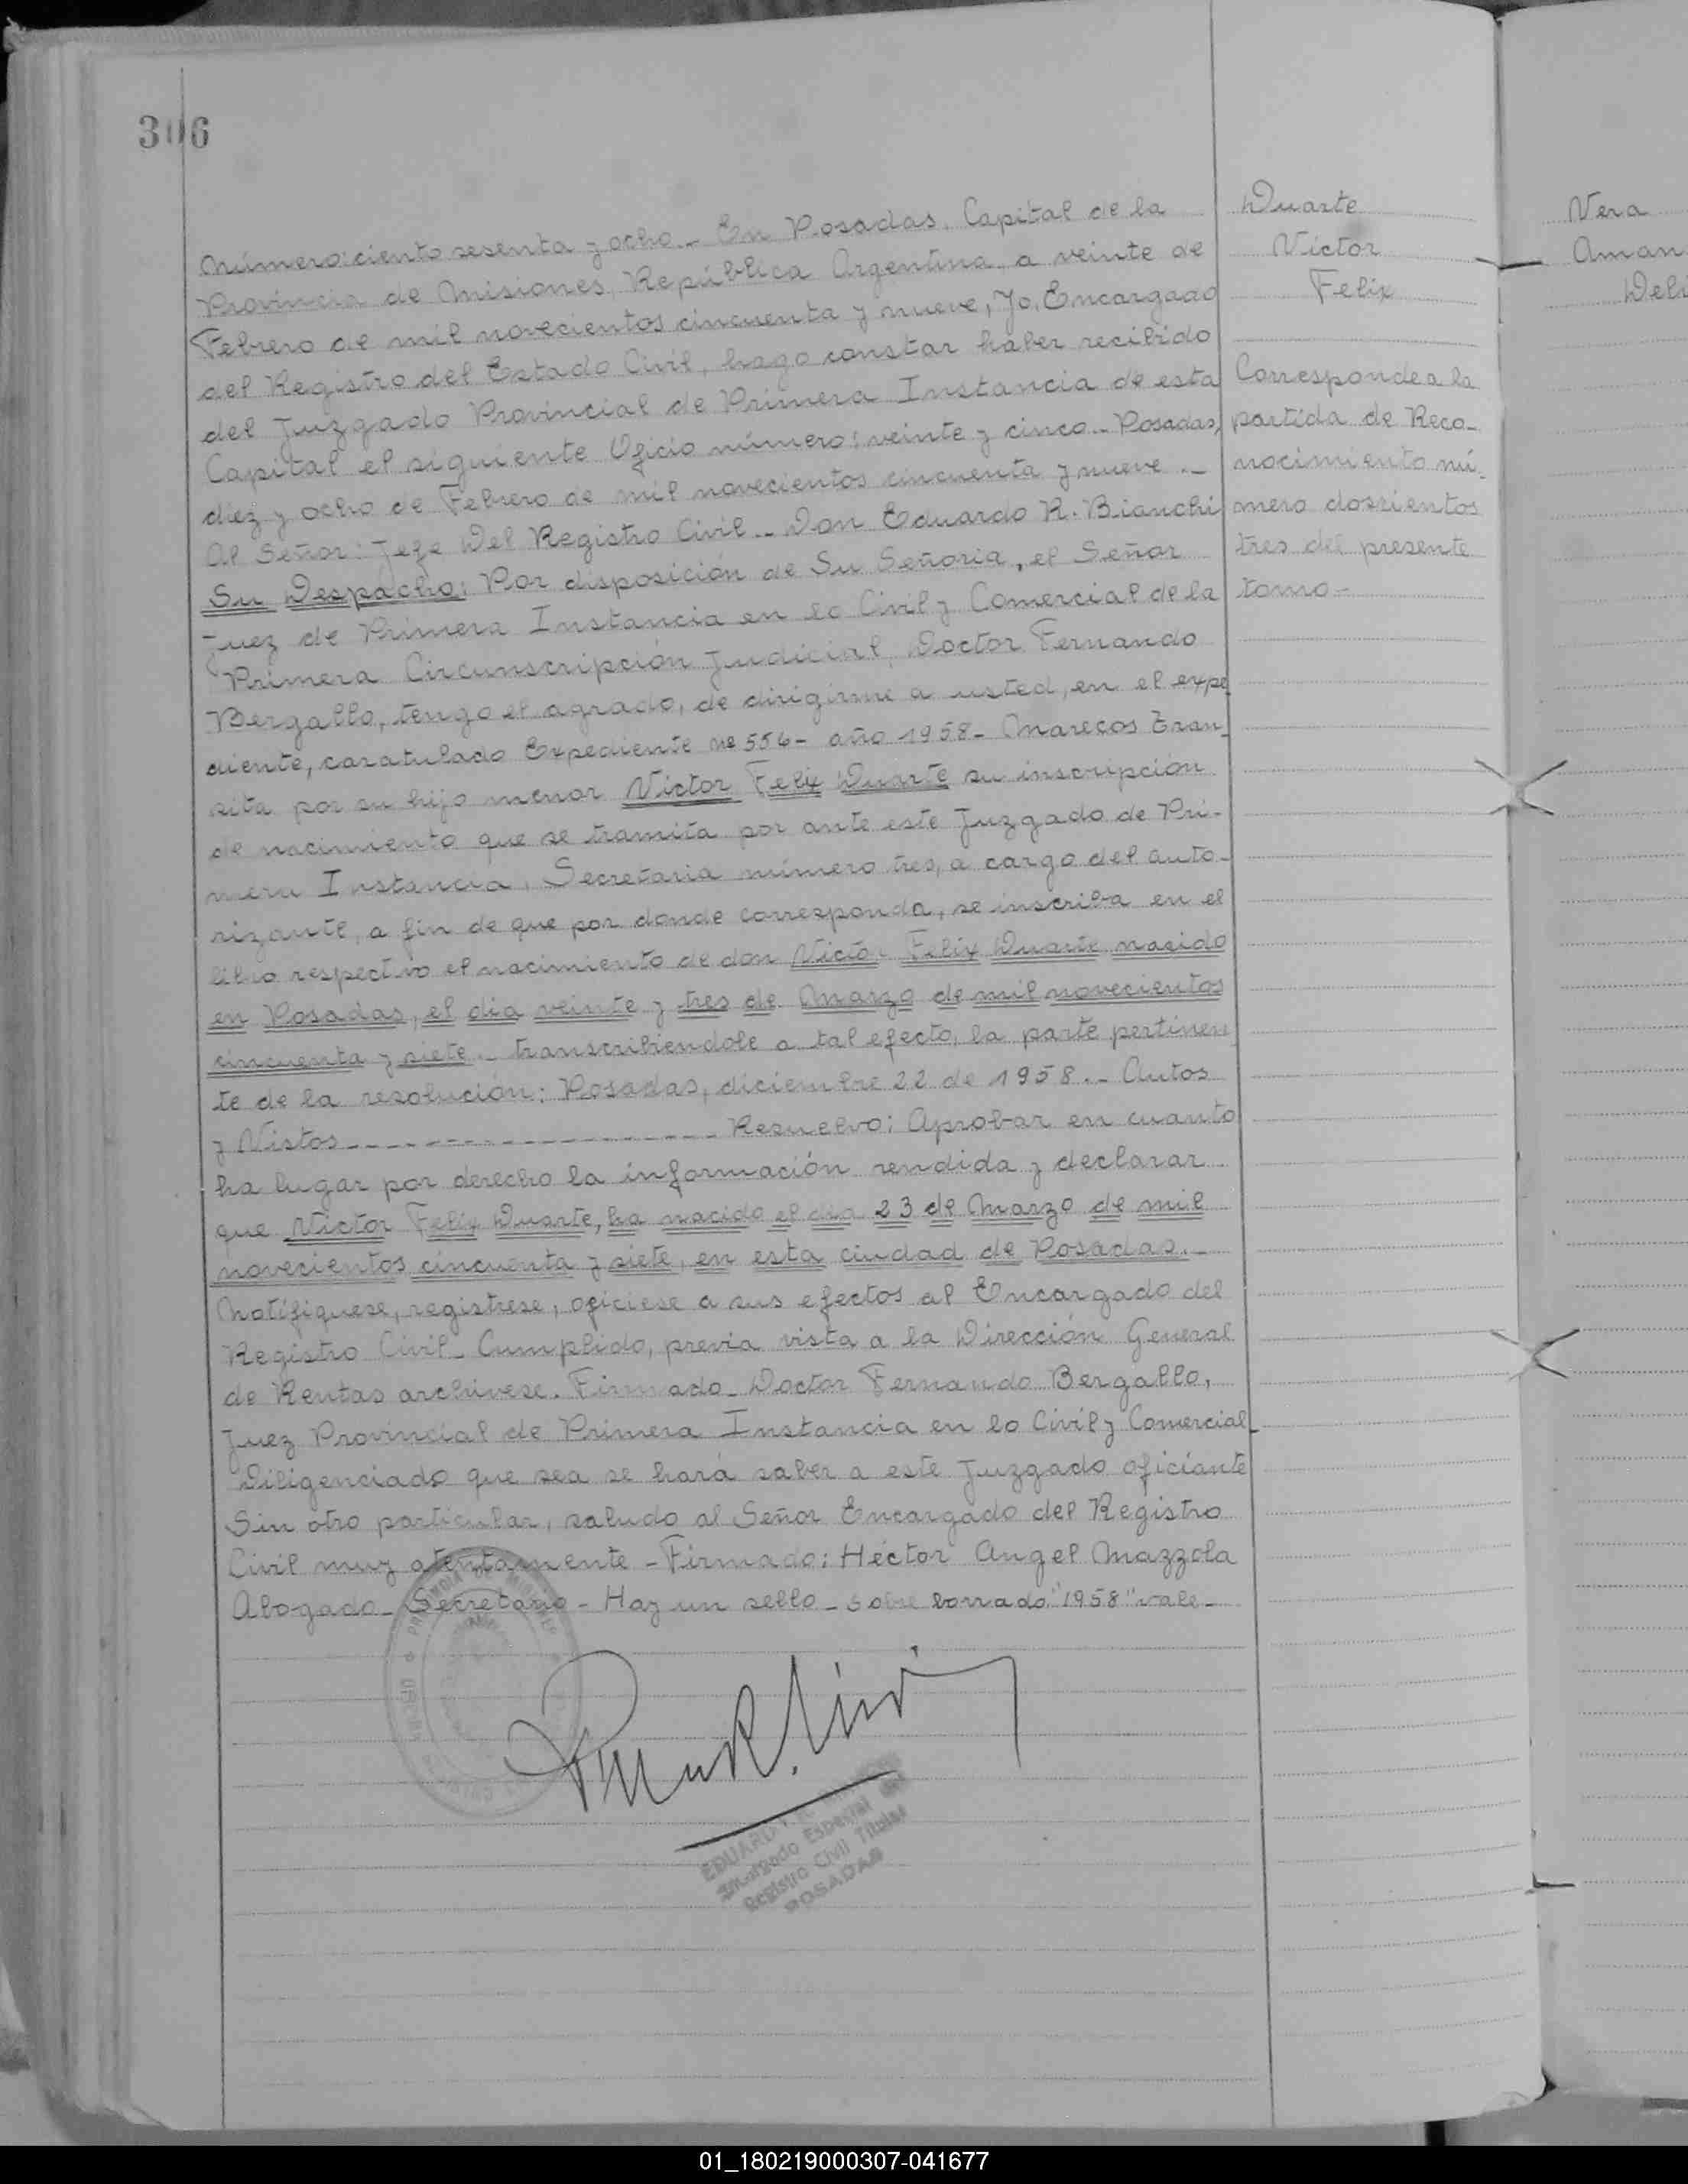 306
Número: ciento sesenta y ocho.- En Posadas, Capital de la
Provincia de Misiones, República Argentina, a veinte de
Febrero de mil novecientos cincuenta y nueve, Yo, Encargado
del Registro del Estado Civil, hago constar haber recibido
del Juzgado Provincial de Primera Instancia de esta
Capital el siguiente Oficio número: veinte y cinco.- Posadas,
diez y ocho de Febrero de mil novecientos cincuenta y nueve.-
Al Señor: Jefe Del Registro Civil.- Don Eduardo R. Bianchi
Su Despacho: Por disposición de Su Señoria, el Señor
Juez de Primera Instancia en lo Civil y Comercial de la
Primera Circunscripción Judicial, Doctor Fernando
Bergallo, tengo el agrado, de dirigirme a usted, en el expe
diente, caratulado Expediente nº 554- año 1958- Marecos Tran_
sita por su hijo menor Victor Felix Duarte su inscripción
de nacimiento que se tramita por ante este Juzgado de Pri-
mera Instancia, Secretaria número tres, a cargo del auto-
rizante, a fin de que por donde corresponda, se inscriba en el
libro respectivo el nacimiento de don Victor Felix Duarte nacido
en Posadas, el dia veinte y tres de Marzo de mil novecientos
cincuenta y siete.- transcribiendole a tal efecto, la parte pertinen
te de la resolución: Posadas, diciembre 22 de 1958.- Autos
y Vistos-------------------- Resuelvo: Aprobar en cuanto
ha lugar por derecho la información rendida y declarar
que Victor Felix Duarte, ha nacido el dia 23 de Marzo de mil
novecientos cincuenta y siete, en esta ciudad de Posadas.-
Notifiquese, registrese, oficiese a sus efectos al Encargado del
Registro Civil- Cumplido, previa vista a la Dirección General
de Rentas archivese. Firmado- Doctor Fernando Bergallo,
Juez Provincial de Primera Instancia en lo Civil y Comercial-
Diligenciado que sea se hará saber a este Juzgado oficiante
Sin otro particular, saludo al Señor Encargado del Registro
Civil muy atentamente - Firmado: Héctor Angel Mazzola
Abogado- Secretario - Hay un sello - Sobre borrado "1958" vale-
Encargado Especial
Registro Civil Titular
POSADAS
Duarte
Victor
Felix
Corresponde a la
partida de Reco-
nocimiento nú-
mero doscientos
tres del presente
tomo-
Vera
Aman
Deli
01_180219000307-041677